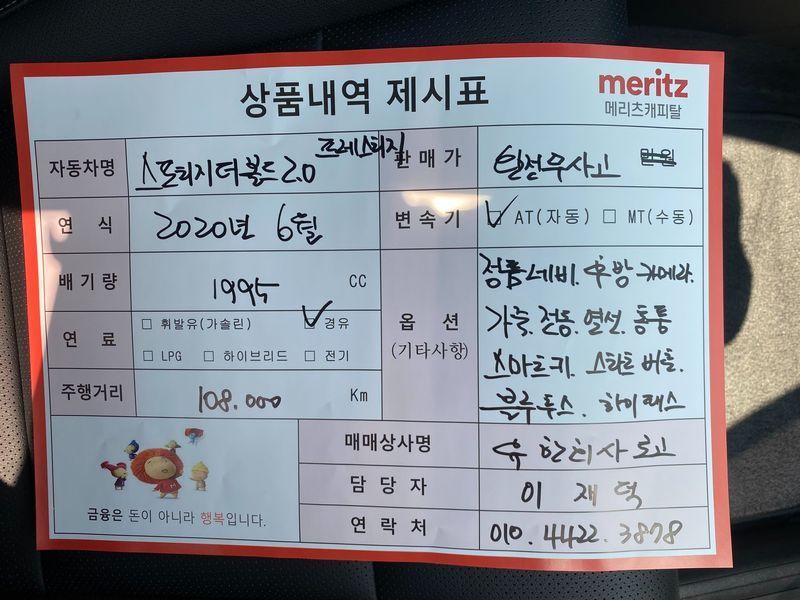 상품내역 제시표
meritz
메리츠캐피탈
자동차명 스포티지더볼드2.0 프레스티지
판매가 완전무사고 만원
연 식 2020년 6월
변속기 ☑ AT(자동) ☐ MT(수동)
배기량 1995 CC
연 료 ☐ 휘발유(가솔린) ☑ 경유
☐ LPG ☐ 하이브리드 ☐ 전기
주행거리 108.000 Km
옵 션
(기타사항)
정품네비. 후방카메라.
가죽. 전동. 열선. 통풍
스마트키. 스타트버튼.
블루투스. 하이패스
매매상사명
담 당 자 이 재 덕
연 락 처 010. 4422. 3878
금융은 돈이 아니라 행복입니다.